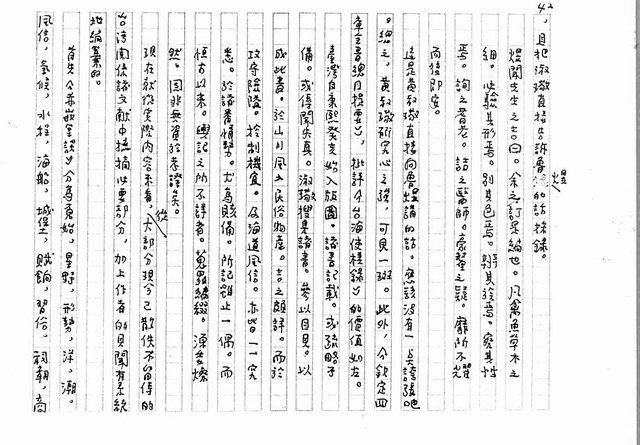 42，且把淑璥直接告訴魯煜的話採錄。
煜聞先生之言曰。余之訂是編也。凡禽魚草木之
細。必驗其形焉。別其色焉。辨其族焉。察其性
焉。詢之耆老。詰之醫師。毫釐之疑。靡所不耀
而後即安。
這是黃叔璥直接向魯煜講的話。應該沒有一點誇張吧
。總之，黃叔璥研究心之強，可見一斑。此外，《欽定四
庫全書總目提要》，批評《台海使槎錄》的價值如左。
臺灣自康熙癸亥始入版圖。諸書記載。或疏略不
備。或傳聞失真。淑璥裒集諸書。參以目見。以
成此書。於山川風土民俗物產。言之頗詳。而於
攻守險隘。控制機宜。及海道風信。亦皆一一究
悉。於諸番情勢。尤為賅備。所記雖止一偶。而
恆古以來。輿記之所不詳者。蒐羅編綴。源委燦
然。固非無資於考證矣。
現在就從實際內容來看，大部分從現今已散佚不留傳的
台灣關係諸文獻中摘摘必要部分，加上作者的見聞有系統
地編纂的。
首先《赤嵌筆談》分為原始，星野，形勢，洋，潮，
風信，氣候，水程，海船，城堡，賦餉，習俗，祠廟，商